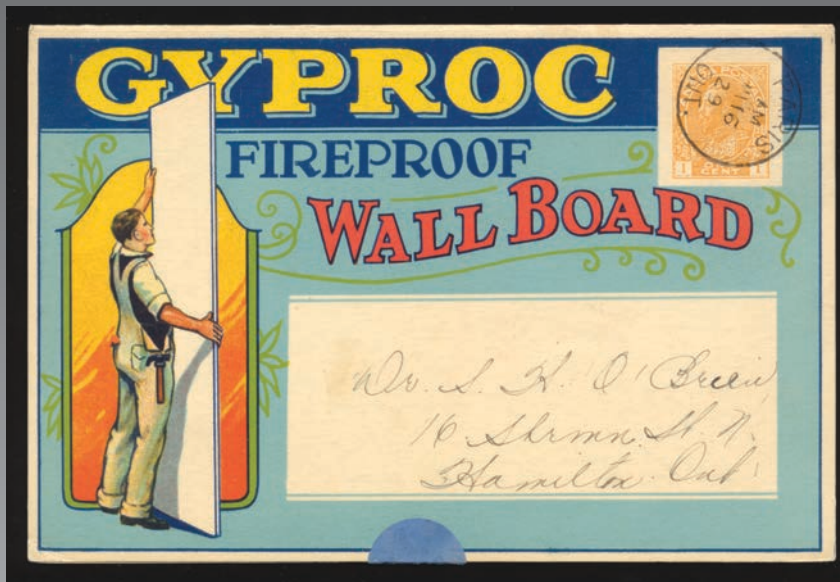 GYPROC
FIREPROOF
WALL BOARD
PARIS
ONT.
AM
16
29
1 ONE CENT 1
Dr. S. H. O'Brien
16 St. N.
Hamilton Ont